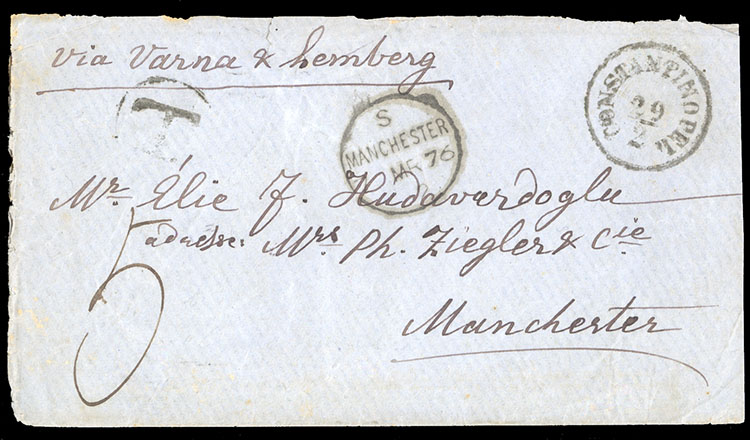 via Varna & Lemberg
T
CONSTANTINOPEL
29
2
S
MANCHESTER
MR 76
Mr. Élie J. Hudaverdoglu
adresse: Mrs. Ph. Ziegler & Cie
5
Manchester